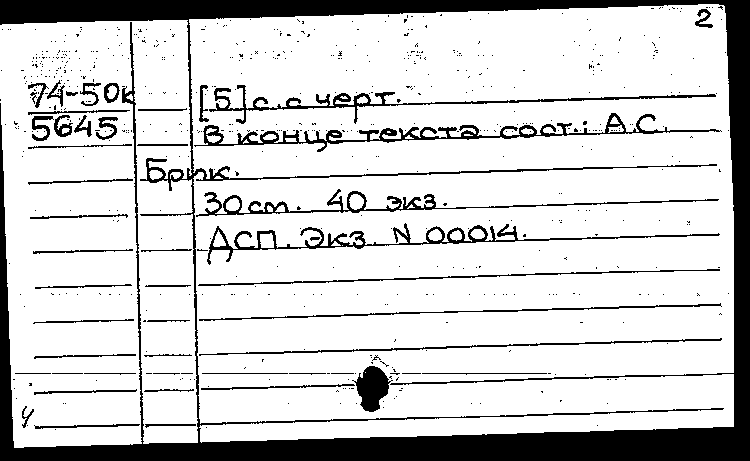 2
74-50к [5] с. с черт.
5645 В конце текста сост.: А.С.
Брик.
30 см. 40 экз.
ДСП. Экз. N 00014.
ч